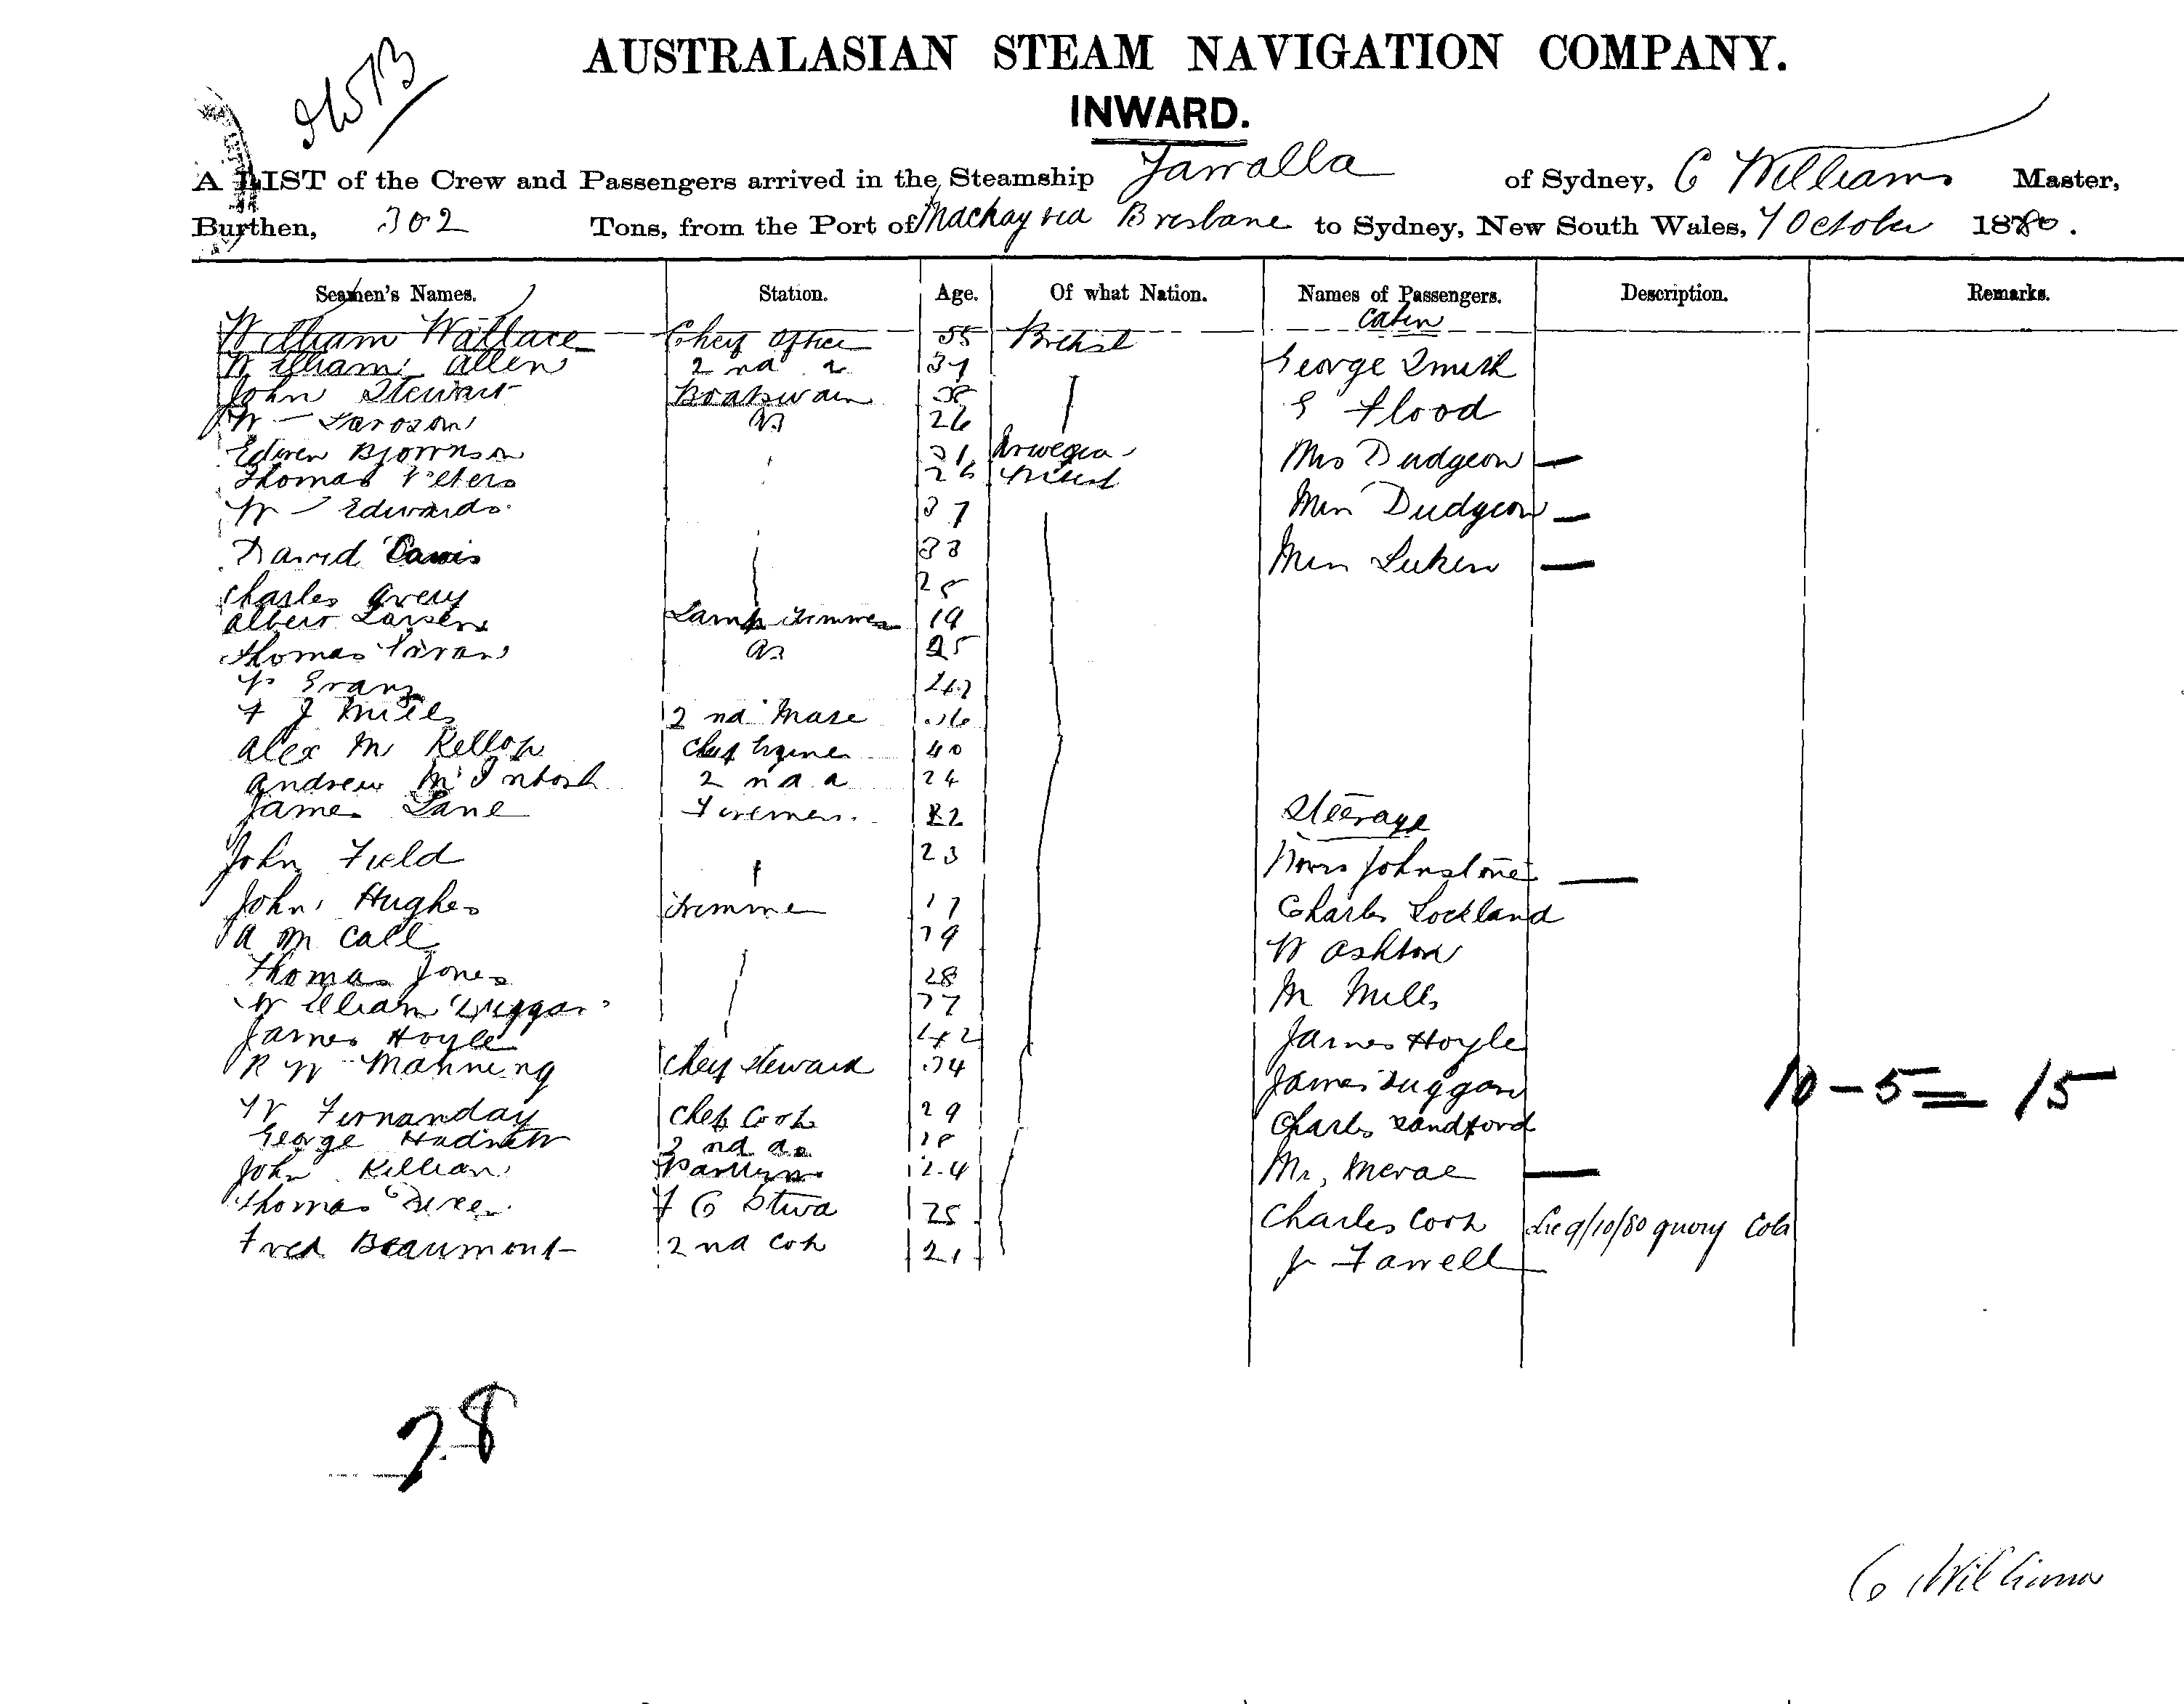 AUSTRALASIAN STEAM NAVIGATION COMPANY.
INWARD.
A LIST of the Crew and Passengers arrived in the Steamship Yaralla of Sydney, C Williams Master,
Burthen, 302 Tons, from the Port of Mackay via Brisbane to Sydney, New South Wales, 7 October 1880.
Seamen's Names. Station. Age. Of what Nation. Names of Passengers. Description. Remarks.
Cabin
William Wallace Chief Officer 55 British
William Allen 2nd 37 George Smith
John Stewart Boatswain 38 E Flood
W 26
Edwin Bjornson 31 Norwegian Mrs Dudgeon —
Thomas Peters 26 British
W Edwards 37 Miss Dudgeon —
David Davis 33 Miss Luken —
Charles Avery 25
Albert Larsen Lamp Trimmer 19
Thomas AB 25
Evans
F J Mills 2nd Mate
Alex Mc Kellop Chief Engineer 40
Andrew McIntosh 2nd 24
James Lane Firemen 22 Steerage
John Field 23 Johnstone —
John Hughes Trimmer 17 Charles Lockland
A Mc Call 19 W Ashton
Thomas Jones 28 M Mills
William Duggan 27
James Hoyle 42 James Hoyle
R W Manning Chief Steward 34 James Duggan 10 - 5 = 15
W Fernanday Chief Cook 29 Charles Sandford
George 2nd 18
John Killian Pantryman 24 Mr, Mcrae —
Thomas F C Stwd 25 Charles Cook 9/10/80 query
Fred Beaumont 2nd Cook 21 J Farrell
28
C Williams